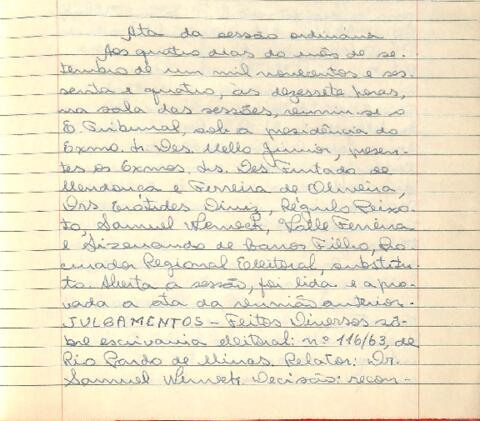 Ata da sessão ordinária
Aos quatro dias do mês de se-
tembro de um mil novecentos e ses-
senta e quatro, às dezessete horas,
na sala das sessões, reuniu-se o
E. Tribunal, sob a presidência do
Exmo. Sr. Des. Mello Júnior, presen-
tes os Exmos. Srs. Des. Furtado de
Mendonça e Ferreira de Oliveira,
Drs. Erótides Diniz, Régulo Peixo-
to, Samuel Werneck, Valle Ferreira
e Sizenando de Barros Filho, Pro
curador Regional Eleitoral, substitu-
to. Aberta a sessão, foi lida e apro-
vada a ata da reunião anterior.
JULGAMENTOS - Feitos Diversos sô-
bre escrivania eleitoral: nº 116/63, de
Rio Pardo de Minas. Relator: Dr.
Samuel Werneck. Decisão: recon-